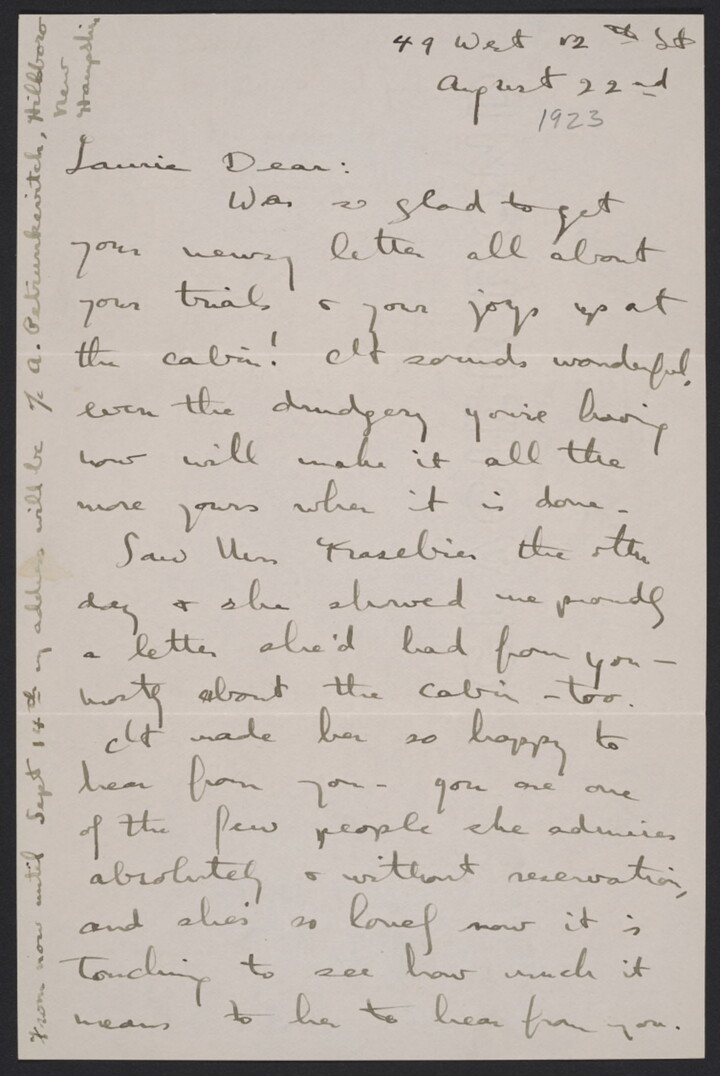 49 West 12th St
August 22nd
1923
Laurie Dear:
Was so glad to get
your newsy letter all about
your trials & your joys up at
the cabin! It sounds wonderful,
even the drudgery you're having
now will make it all the
more yours when it is done -
Saw the other
day & she showed me proudly
a letter she'd had from you -
mostly about the cabin - too.
It made her so happy to
hear from you - you are one
of the few people she admires
absolutely & without reservation,
and she's so lonely now it is
touching to see how much it
means to her to hear from you.
From now until Sept 14th my address will be % A. Petrunkevitch, Hillsboro
New
Hampshire